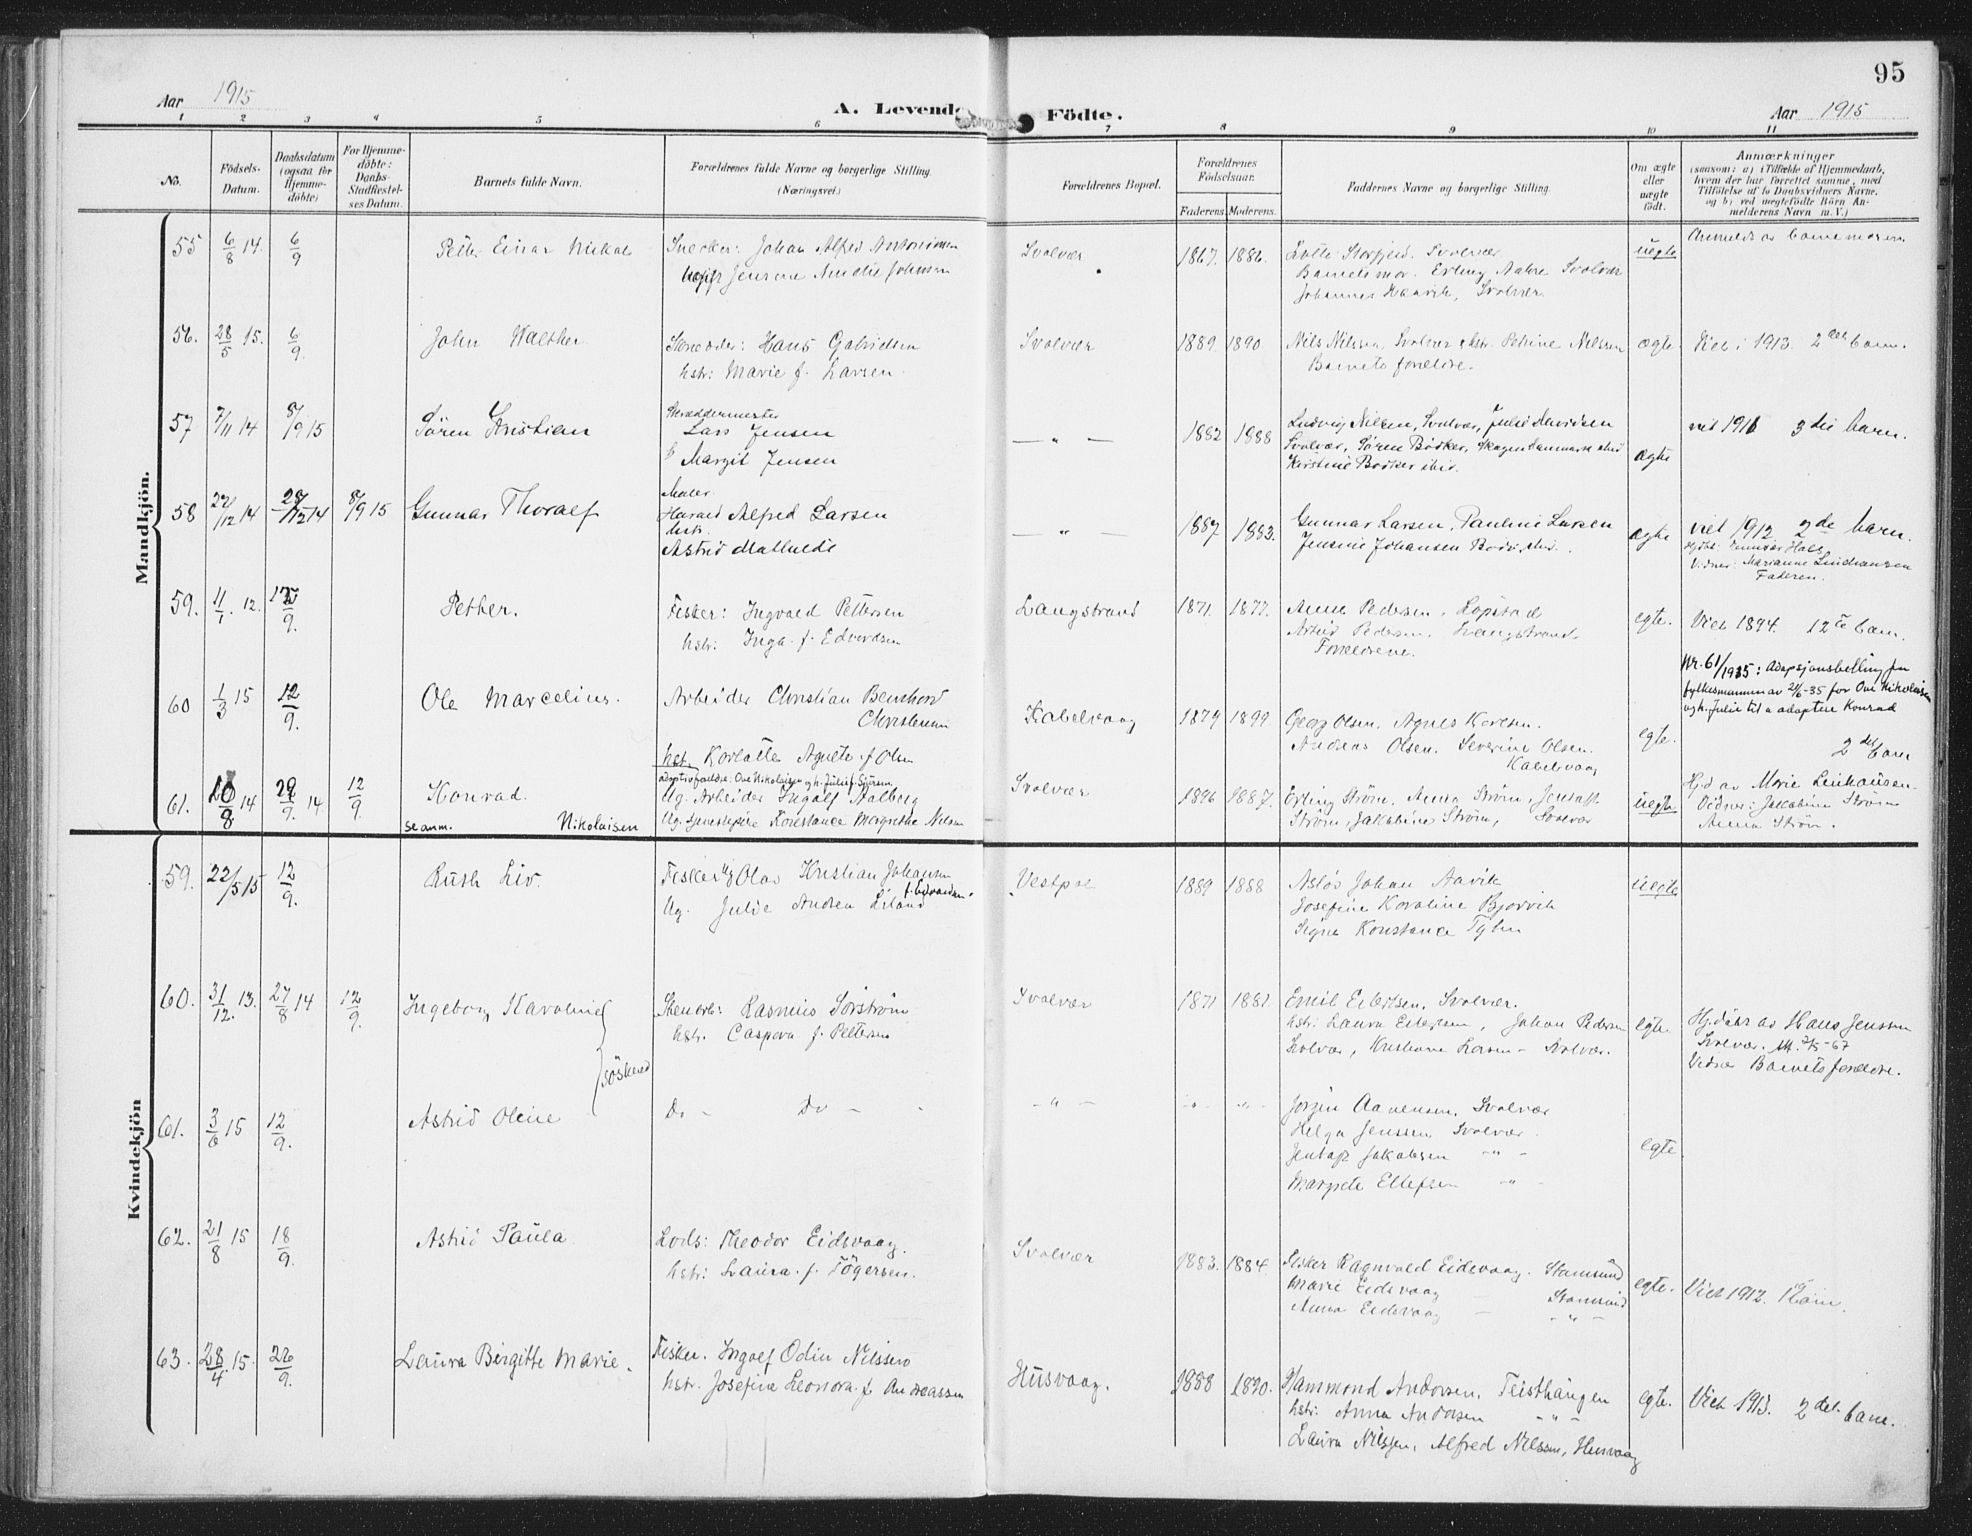 95
Aar 1915
A. Levende Födte.
Aar 1915
1 2 3 4 5 6 7 8 9 10 11
No.
Födsels-
Datum.
Daabsdatum
(ogsaa for
Hjemme-
döbte)
For Hjemme-
döbte:
Daabs-
Stadfæstel-
ses Datum.
Barnets fulde Navn.
Forældrenes fulde Navne og borgerlige Stilling
(Næringsvei.)
Forældrenes Bopæl.
Forældrenes
Födselsaar.
Faderens. Moderens.
Faddernes Navne og borgerlige Stilling.
Om ægte
eller
uægte
födt.
Anmærkninger
(saasom: a) i Tilfælde af Hjemmedaab,
hvem der har forrettet samme, med
Tilföielse af to Daabsvidners Navne,
og b) ved uegtefödte Börn An-
melderens Navn m. V.)
Mandkjön.
55 6/8 14. 6/9
Einar
Snecker: Johan Alfred
Jensine Amalie Johnsen
Svolvær
1867. 1886.
Svolvær
Barnets mor. Erling Svolvær
Johannes Haavik, Svolvær
uegte
56. 28/5 15. 6/9
John Walther
Hans Gabrielsen
hstr: Marie f. Larsen.
Svolvær
1889 1890
Nils Nilssen, Svolvær hstr. Petrine Nilssen
Barnets foreldre.
ægte
Viet i 1913. 2det barn.
57 7/11 14 8/9 15
Sören Kristian
Skræddermester
Lars Jensen
Margit Jensen
— „ —
1882 1888
Ludvig Nilsen, Svolvær, Julie Davidsen
Svolvær, Søren Bödker, Skagen Danmark
Kirstine Bödker ibid.
ægte
viet 1911 3die barn.
58 22/12 14 28/12 14 8/9 15
Gunnar Thoralf
Maler
Harald Alfred Larsen
hstr.
Astrid Mathilde
— „ —
1887 1883.
Gunnar Larsen, Pauline Larsen
Jensine Johansen Bodö,
ægte
viet 1912 2de barn.
Vidner: Marianne Lindhausen
Faderen.
59. 4/1. 12. 12/9.
Petter.
Fisker: Ingvald Pettersen
hstr: Inga f. Edvardsen
Langstrand
1871. 1877.
Anne Pedersen. Lopstad
Pedersen. Langstrand.
Foreldrene.
egte.
Viet 1894. 12te barn.
60 1/3 15 12/9.
Ole Marcelius.
Arbeider Christian Bernhard
Christensen
hstr. Agnete f. Olsen
Kabelvaag
1874 1899
Georg Olsen. Agnes Karlsen.
Andreas Olsen. Severine Olsen.
Kabelvaag
egte.
Nr. 61/1935: Adopsjonsbevilling fra
fylkesmannen av 21/6-35 for Ove Nikolaisen
og h. Julie til å adoptere Konrad
2det barn
61. 10/8 14 29/9. 14 12/9
Konrad.
se anm. Nikolaisen
adoptivforeldre: Ove Nikolaisen og h. Julie f. Sjursen
Ug. Arbeider Ingolf Aalberg
Ug. Konstance Margrethe Nilsen
Svolvær
1896 1887.
Erling Ström, Anna Ström,
Ström, Jakobine Ström, Svolvær
uegte
Hjd av Marie Linhausen.
Vidner: Jakobine Ström
Anna Ström.
Kvindekjön
59. 22/5 15 12/9.
Ruth Liv.
Fisker Ug Olav Kristian Johansen
Ug. Julie Andrea
Vestpol
1889 1888
Johan Aarvik
Josefine Karoline Bjorvik
Signe Konstance
uegte
60. 31/12. 13. 27/8 14 12/9.
Ingeborg Karoline
Stenarb: Rasmus Sörström
hstr. Caspara f. Pettersen
Svolvær
1871 1881
Emil Eilertsen, Svolvær.
hstr: Laura Eilertsen, Johan Pedersen
Svolvær, Kristiane Larsen – Svolvær.
egte.
Hj.döbt av Hans Jenssen
Svolvær.
Vidne Barnets foreldre.
söskend
61. 3/6 15 12/9.
Astrid Oline
Do – Do –
– „ –
– „ – – „ –
Jörgin Svolvær
Helga Jenssen Svolvær.
Jakobsen – „ –
Margrete Ellefsen – „ –
egte.
62. 21/8 15 18/9.
Astrid Paula
Lods: Theodor Eidsvaag.
hstr: Laura f. Tögersen.
Svolvær
1883. 1884.
Fisker Ragnvald Eidsvaag. Stamsund
Marie Eidsvaag – Stamsund
Anna Eidsvaag – „ –
egte.
Viet 1912. barn.
63. 28/4. 15. 26/9.
Laura Birgitte Marie.
Fisker. Ingolf Odin Nilssen
hstr. Josefine Leonora f. Andreassen
Husvaag.
1888 1890.
Hammond Andersen, Teisthangen
hstr: Anna Andersen – „ –
Laura Nilssen, Alfred Nilssen, Husvaag
egte.
Viet 1913. 2det barn.